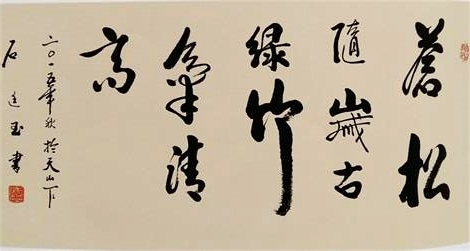 蒼松
隨歲古
绿竹
氣清
高
二〇一五年秋於天山下
石廷玉書